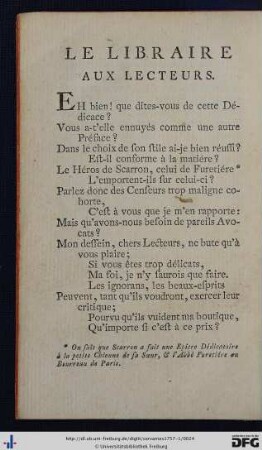 LE LIBRAIRE
AUX LECTEURS.
EH bien! que dites-vous de cette Dé-
dicace?
Vous a-t'elle ennuyés comme une autre
Préface?
Dans le choix de son stile ai-je bien réussi?
Est-il conforme à la matière?
Le Héros de Scarron, celui de Furetiére *
L'emportent-ils sur celui-ci?
Parlez donc des Censeurs trop maligne co-
horte,
C'est à vous que je m'en rapporte:
Mais qu'avons-nous besoin de pareils Avo-
cats?
Mon dessein, chers Lecteurs, ne bute qu'à
vous plaire;
Si vous êtes trop délicats,
Ma foi, je n'y saurois que faire.
Les ignorans, les beaux-esprits
Peuvent, tant qu'ils voudront, exercer leur
critique;
Pourvu qu'ils vuident ma boutique,
Qu'importe si c'est à ce prix?
* On sait que Scarron a fait une Epitre Dédicatoire
à la petite Chienne de sa Sœur, & l'Abbé Furetière au
Bourreau de Paris.
© Universitätsbibliothek Freiburg
gefördert durch die
DFG